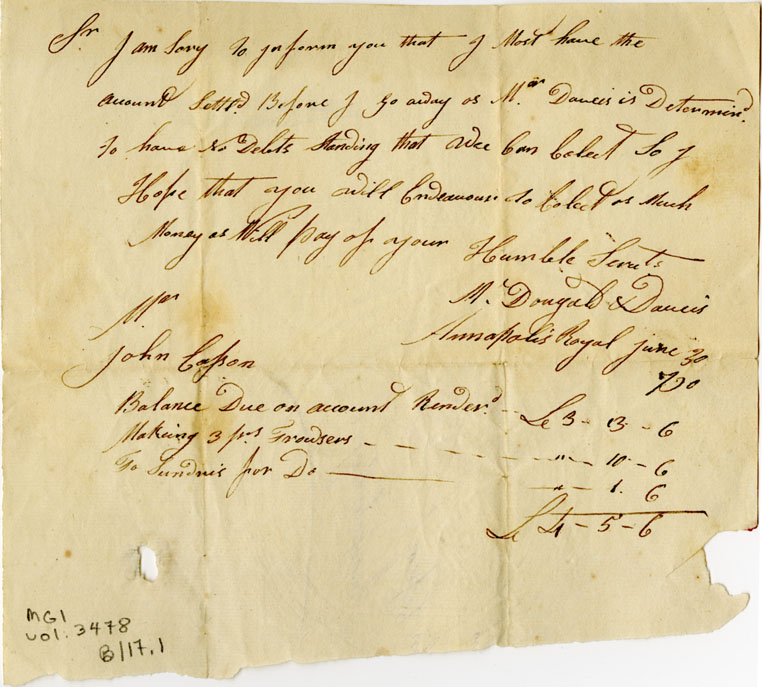 Sr I am Sory to inform you that I Most have the
account Settd. Before I go away as Mr. Daveis is Determind.
to have No Debts Standing that wee Can Colect So I
Hope that you will Endeavour to Colect as Much
Money as Will pay of your Humble Servts.
Mc Dougald & Daveis
Annapolis Royal june 30
790
Mr
John Casson
Balance Due on account Renderd. -- L 3 - 13 - 6
Making 3 prs Trowsers - - - - - " - 10 - 6
To Sundris for Do ——— " - 1. 6
L 4 - 5 - 6
MG1
vol. 3478
B/17.1